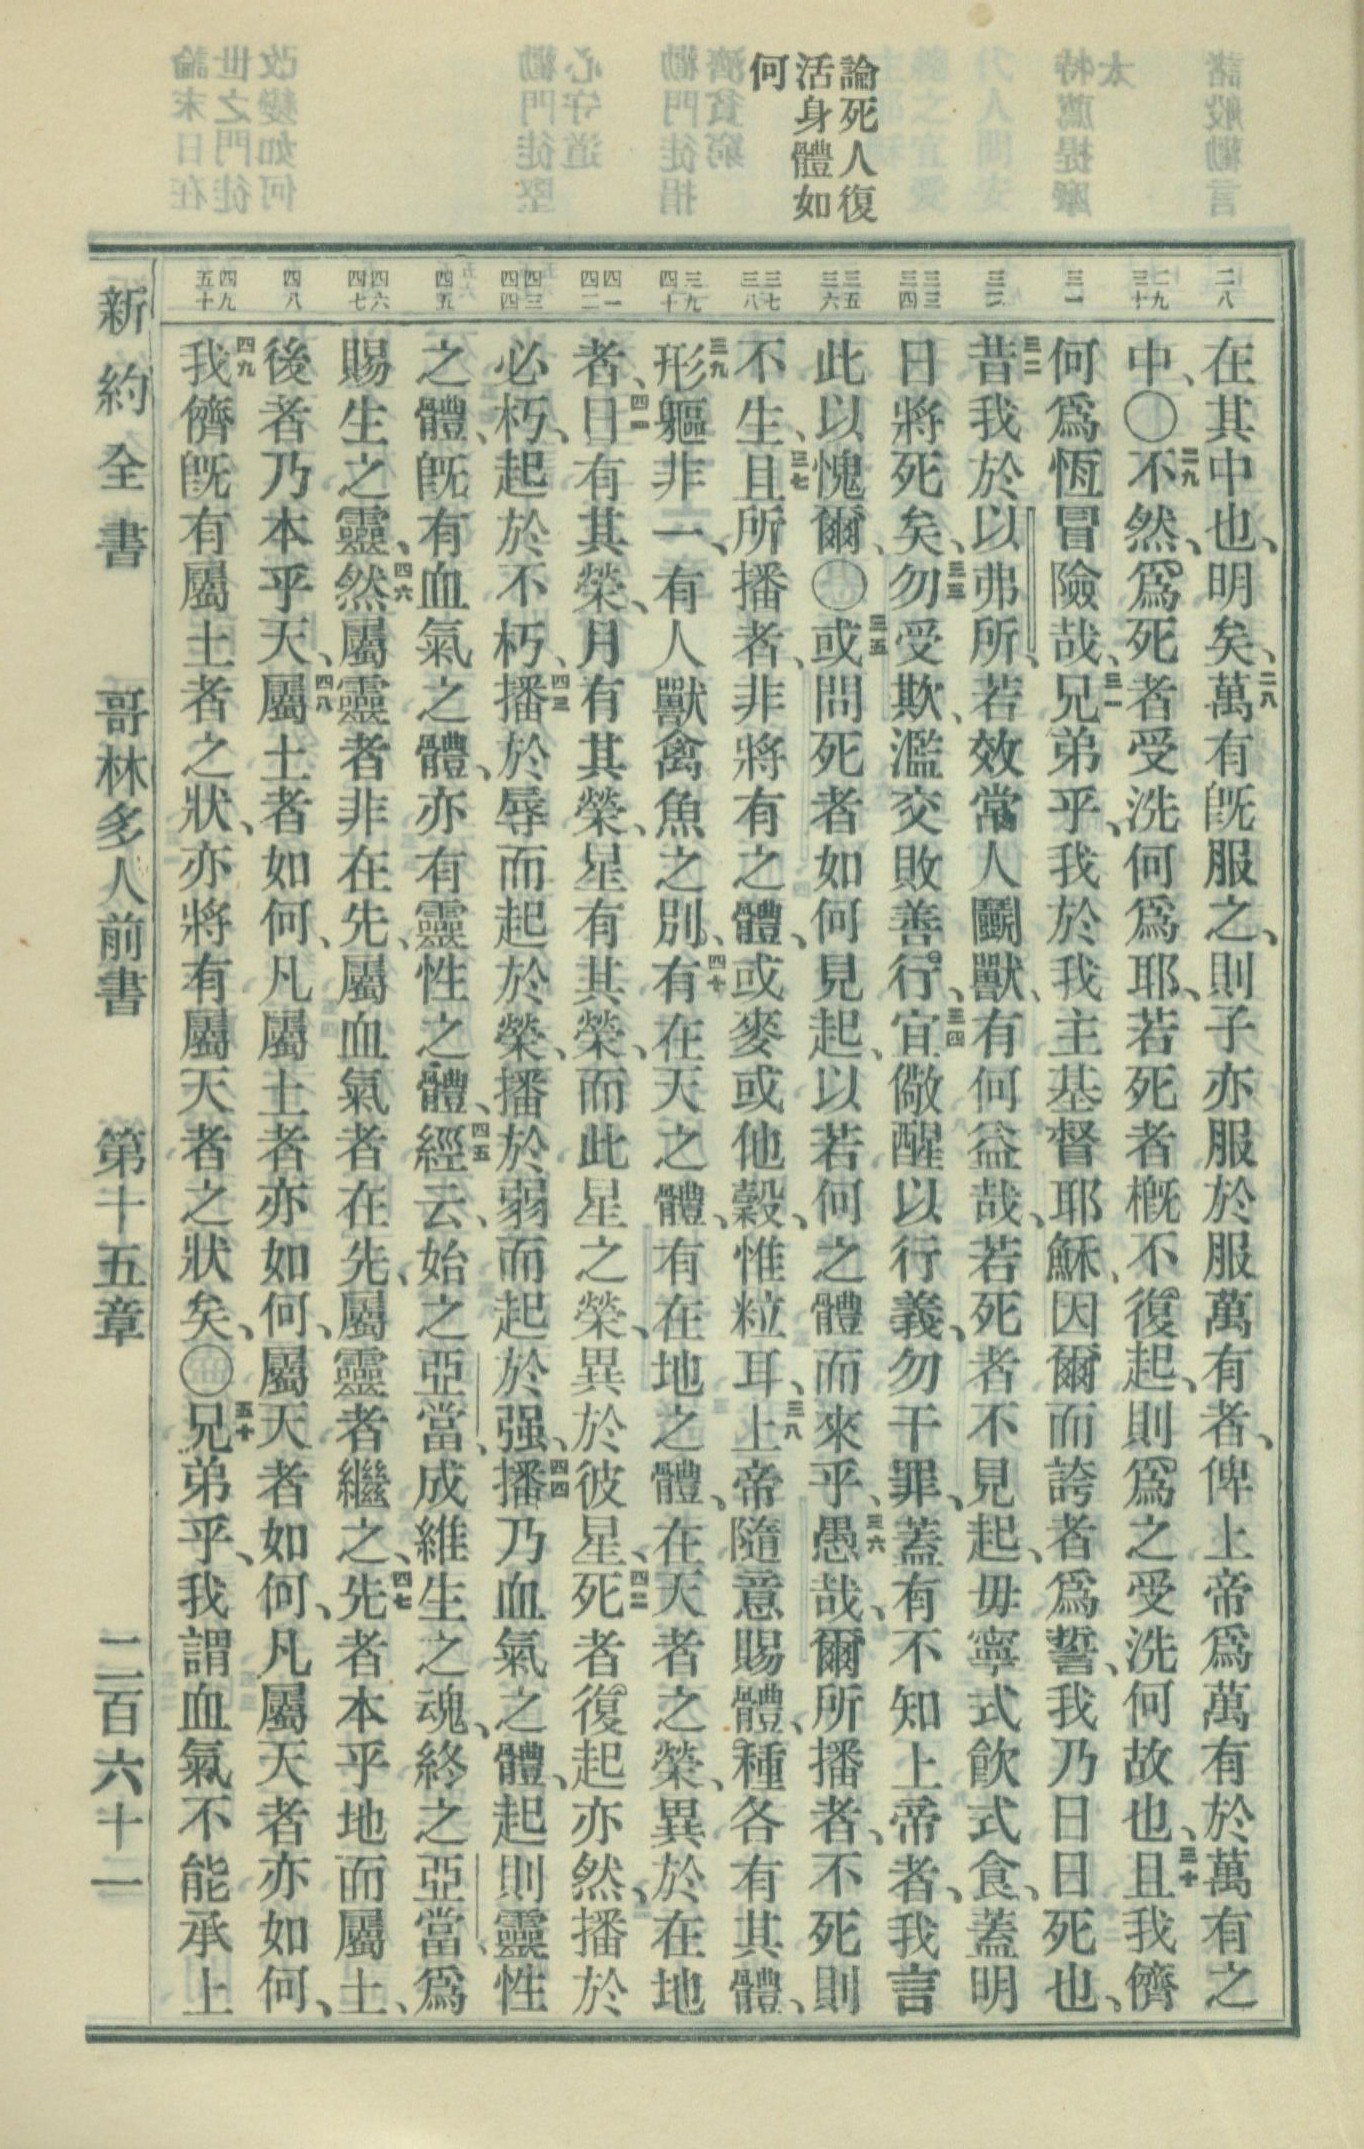 論死人復
活身體如
何
二八
二九 三十
三一
三二
三三 三四
三五 三六
三七 三八
三九 四十
四一 四二
四三 四四
四五
四六 四七
四八
四九 五十
在其中也、明矣、二八萬有旣服之、則子亦服於服萬有者、俾上帝爲萬有於萬有之
中、〇二九不然、爲死者受洗何爲耶、若死者槪不復起、則爲之受洗何故也、三十且我儕
何爲恆冒險哉、三一兄弟乎、我於我主基督耶穌、因爾而誇者爲誓、我乃日日死也、
三二昔我於以弗所、若效常人鬭獸、有何益哉、若死者不見起、毋寧式飮式食、蓋明
日將死矣、三三勿受欺、濫交敗善行、三四宜儆醒以行義、勿干罪、蓋有不知上帝者、我言
此以愧爾、〇三五或問死者如何見起、以若何之體而來乎、三六愚哉、爾所播者、不死則
不生、三七且所播者、非將有之體、或麥或他穀、惟粒耳、三八上帝隨意賜體、種各有其體、
三九形軀非一、有人獸禽魚之別、四十有在天之體、有在地之體、在天者之榮、異於在地
者、四一日有其榮、月有其榮、星有其榮、而此星之榮、異於彼星、四二死者復起亦然、播於
必朽、起於不朽、四三播於辱而起於榮、播於弱而起於强、四四播乃血氣之體、起則靈性
之體、旣有血氣之體、亦有靈性之體、四五經云、始之亞當、成維生之魂、終之亞當、爲
賜生之靈、四六然屬靈者非在先、屬血氣者在先、屬靈者繼之、四七先者本乎地而屬土、
後者乃本乎天、四八屬土者如何、凡屬土者亦如何、屬天者如何、凡屬天者亦如何、
四九我儕旣有屬土者之狀、亦將有屬天者之狀矣、〇五十兄弟乎、我謂血氣不能承上
新約全書 哥林多人前書 第十五章 二百六十一